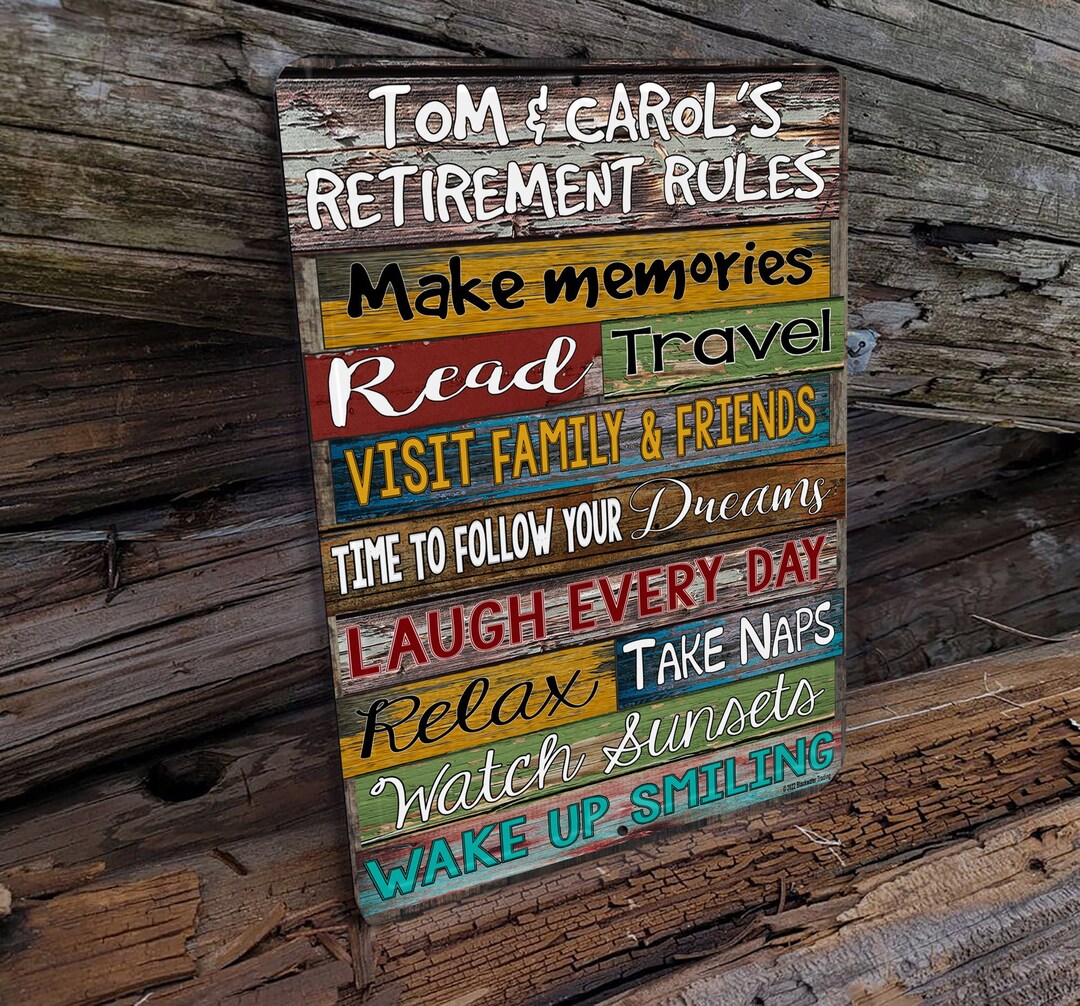 TOM & CAROL'S
RETIREMENT RULES
Make memories
Read Travel
VISIT FAMILY & FRIENDS
TIME TO FOLLOW YOUR Dreams
LAUGH EVERY DAY
Relax TAKE NAPS
Watch Sunsets
WAKE UP SMILING
© 2022 Blackwater Trading